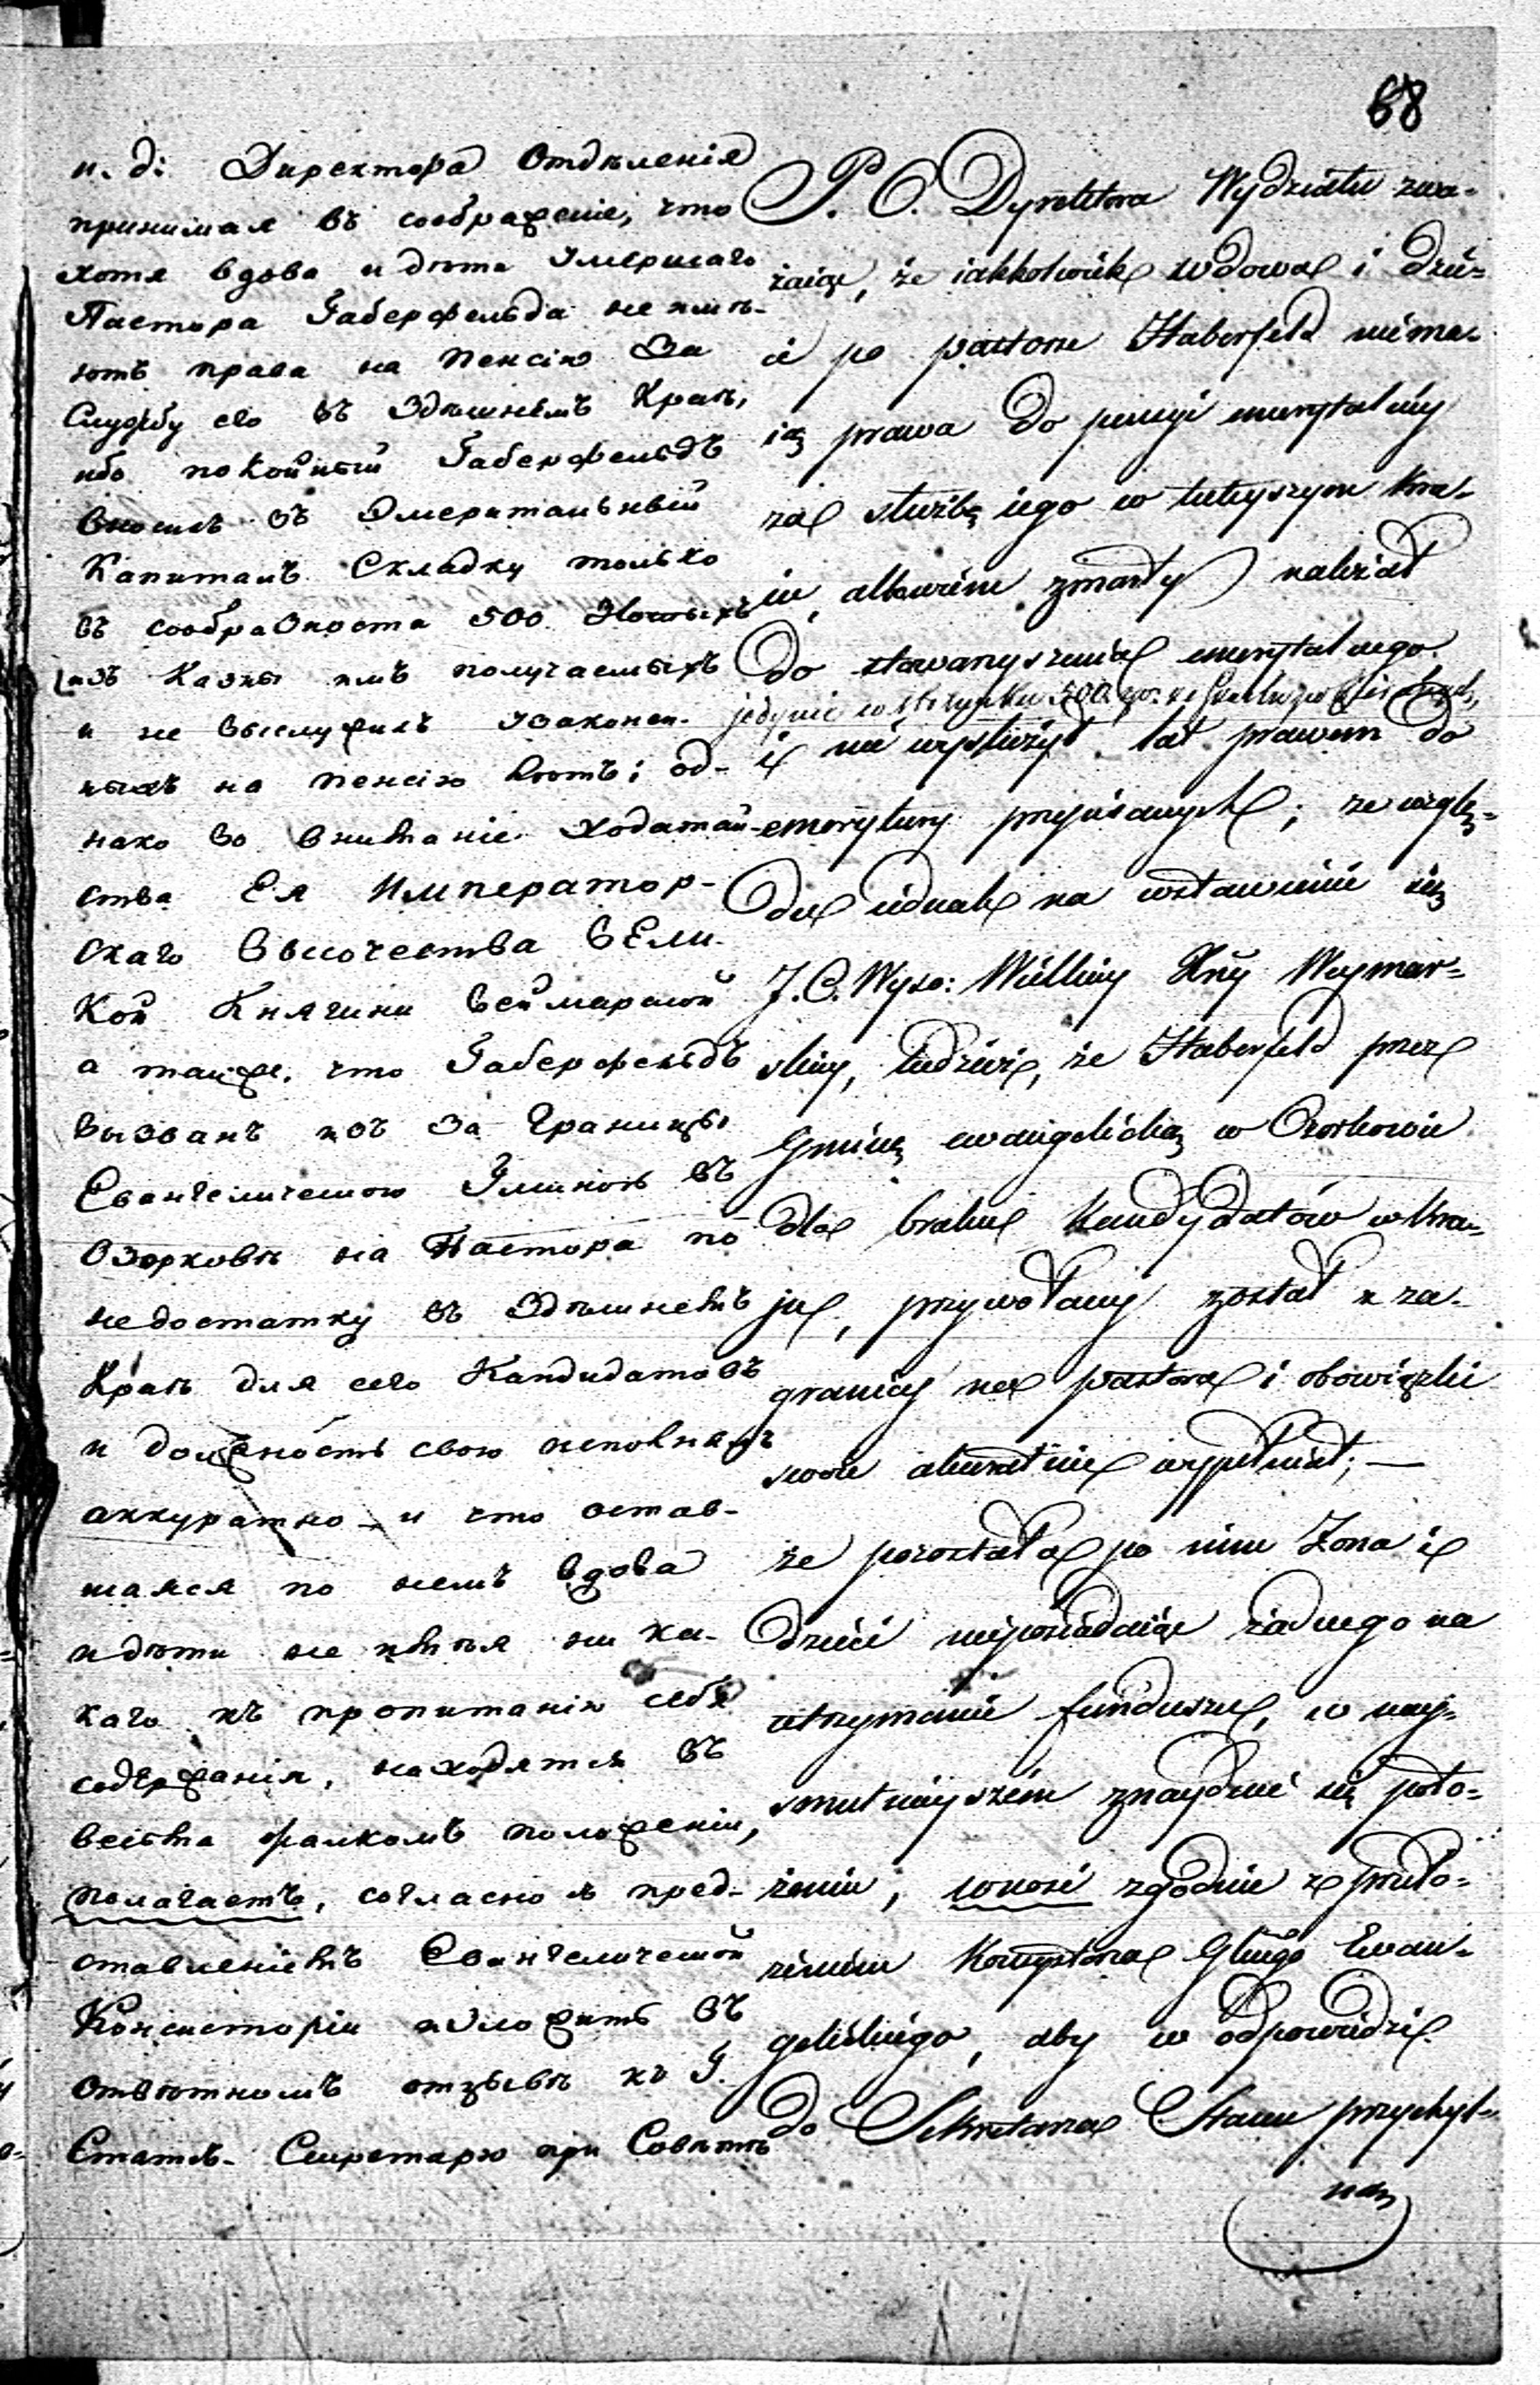 68
и. д: Директора Отдѣленія
принимая въ соображеніе, что
хотя вдова и дѣти Умершаго
Пастора Габерфельда не имѣ-
ютъ права на пенсію За
Службу его въ Здѣшнемъ Краѣ,
ибо покойный Габерфельдъ
вносилъ въ Эмеритальный
Капиталъ Складку только
въ сообразность 500 Злотыхъ
изъ Казны имъ получаемыхъ
и не выслужилъ Узаконен-
ныхъ на пенсію лѣтъ; од-
нако во вниманіе ходатай-
ства Ея Император-
скаго Высочества Вели-
кой Княгини Веймарской
а также, что Габерфельдъ
вызванъ изъ За Границы
Евангелическою Гминою въ
Озорковѣ на Пастора по
недостатку въ Здѣшнемъ
Краѣ для сего Кандидатовъ
и должность свою исполнялъ
аккуратно и что остав-
шаяся по немъ вдова
и дѣти не имѣя ни ка-
каго къ пропитанію себя
содержанія, находятся въ
весьма жалкомъ положеніи,
полагаетъ, согласно съ пред-
ставленіемъ Евангелической
Консисторіи изложить въ
отвѣтномъ отзывѣ къ Г.
Статсъ-Секретарю при Совѣтѣ
P. O. Dyrektora Wydziału zwa-
żaiąc, że iakkolwiek wdowa i dzie-
ci po pastorze Haberfeld niema-
ią prawa do pensyi emerytalney
za służbę iego w tuteyszym Kra-
iu, albowiem zmarły należał
do stowarzyszenia emerytalnego
jedynie w stosunku 500 zł.
i nie wysłużył lat prawem do
emerytury przepisanych; ze wzglę-
du iednak na wstawienie się
J. C. Wyso: Wielkiey Xny Weymar-
skiey, tudzież, że Haberfeld przez
Gminę ewangelicką w Ozorkowie
dla braku Kandydatów w Kra-
ju, przywołany został z za-
granicy na pastora i obowiązki
swoie akuratnie wypełniał; —
że pozostała po nim Żona i
dzieci nieposiadaiąc żadnego na
utrzymanie funduszu, w nay-
smutnieyszém znayduie się poło-
żeniu, wnosi zgodnie z przeło-
żeniem Konsystorza Glnego Ewan-
gelickiego, aby w odpowiedzi
do Sekretarza Stanu przychyl-
ną